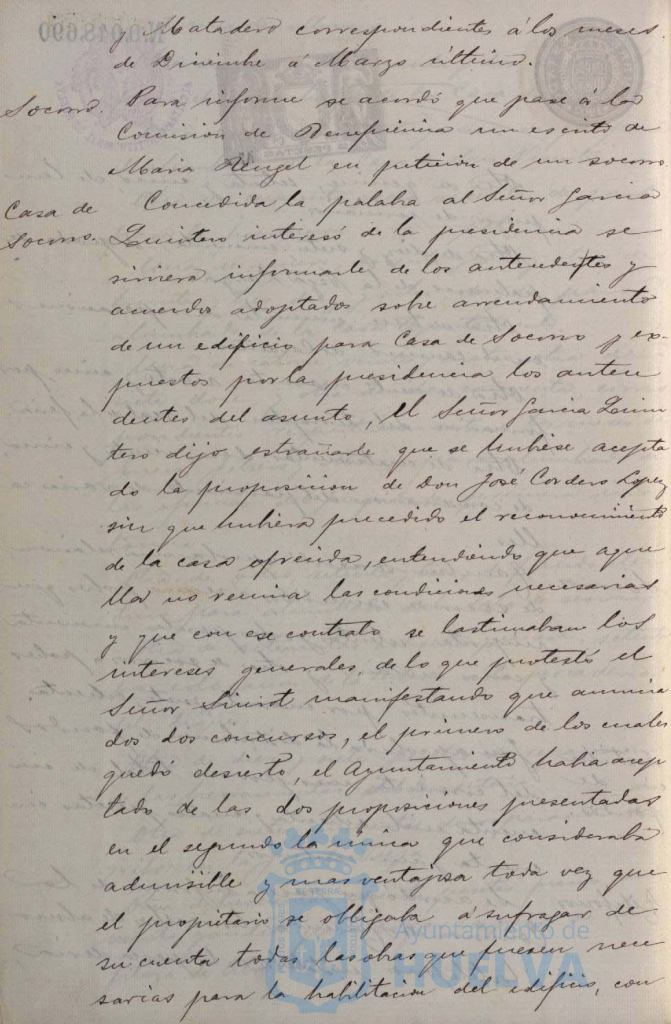 y Matadero correspondientes á los meses
de Diciembre á Marzo último.
Socorro. Para informe se acordó que pase á la
Comision de Beneficencia un escrito de
Maria Rengel en peticion de un socorro.
Casa de Socorro. Concedida la palabra al Señor Garcia
Quintero interesó de la presidencia se
sirviera informarle de los antecedentes y
acuerdos adoptados sobre arrendamiento
de un edificio para Casa de Socorro y ex-
puestos por la presidencia los antece
dentes del asunto, el Señor Garcia Quin
tero dijo estrañarle que se hubiese acepta
do la proposicion de Don José Cordero Lopez
sin que hubiera precedido el reconocimiento
de la casa ofrecida, entendiendo que aque
lla no reunia las condiciones necesarias
y que con ese contrato se lastimaban los
intereses generales, de lo que protestó el
Señor manifestando que anuncia
dos dos concursos, el primero de los cuales
quedó desierto, el Ayuntamiento habia acep
tado de las dos proposiciones presentadas
en el segundo la única que consideraba
admisible y mas ventajosa toda vez que
el propietario se obligaba á sufragar de
su cuenta todas las obras que fuesen nece
sarias para la habilitacion del edificio, con
Ayuntamiento de
HUELVA